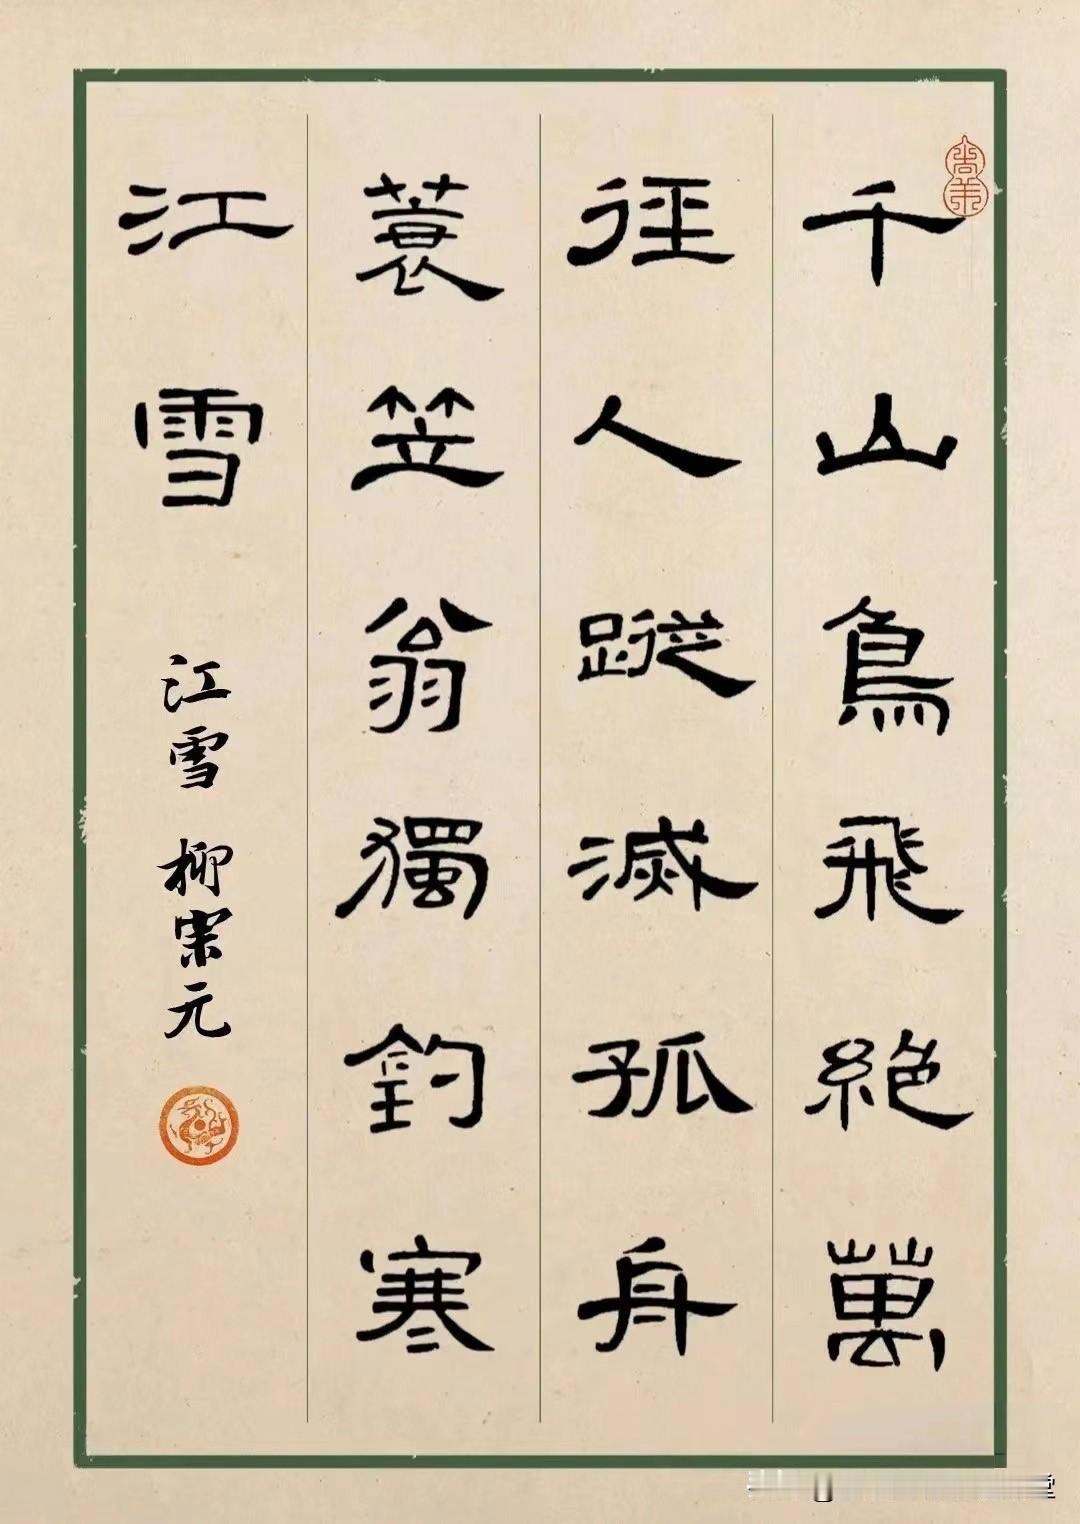 千山鳥飛絕萬
徑人蹤滅孤舟
蓑笠翁獨釣寒
江雪
江雪 柳宗元